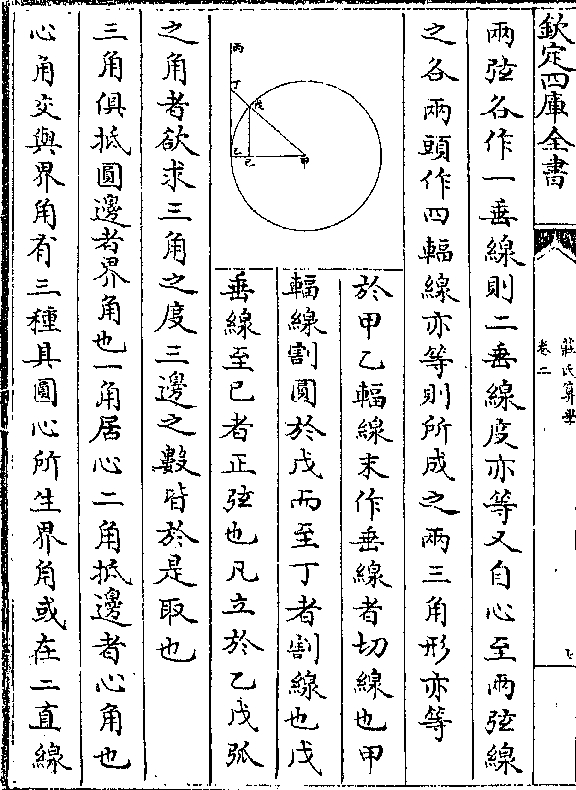 欽定四庫全書
莊氏算學
卷二
兩弦各作一垂線則二垂線度亦等又自心至兩弦線
之各兩頭作四輻線亦等則所成之兩三角形亦等
丙
丁
戊
乙
己
甲
於甲乙輻線末作垂線者切線也甲
輻線割圓於戊而至丁者割線也戊
垂線至己者正弦也凡立於乙戊弧
之角者欲求三角之度三邊之數皆於是取也
三角俱抵圓邊者界角也一角居心二角抵邊者心角也
心角交與界角有三種具圓心所生界角或在二直線